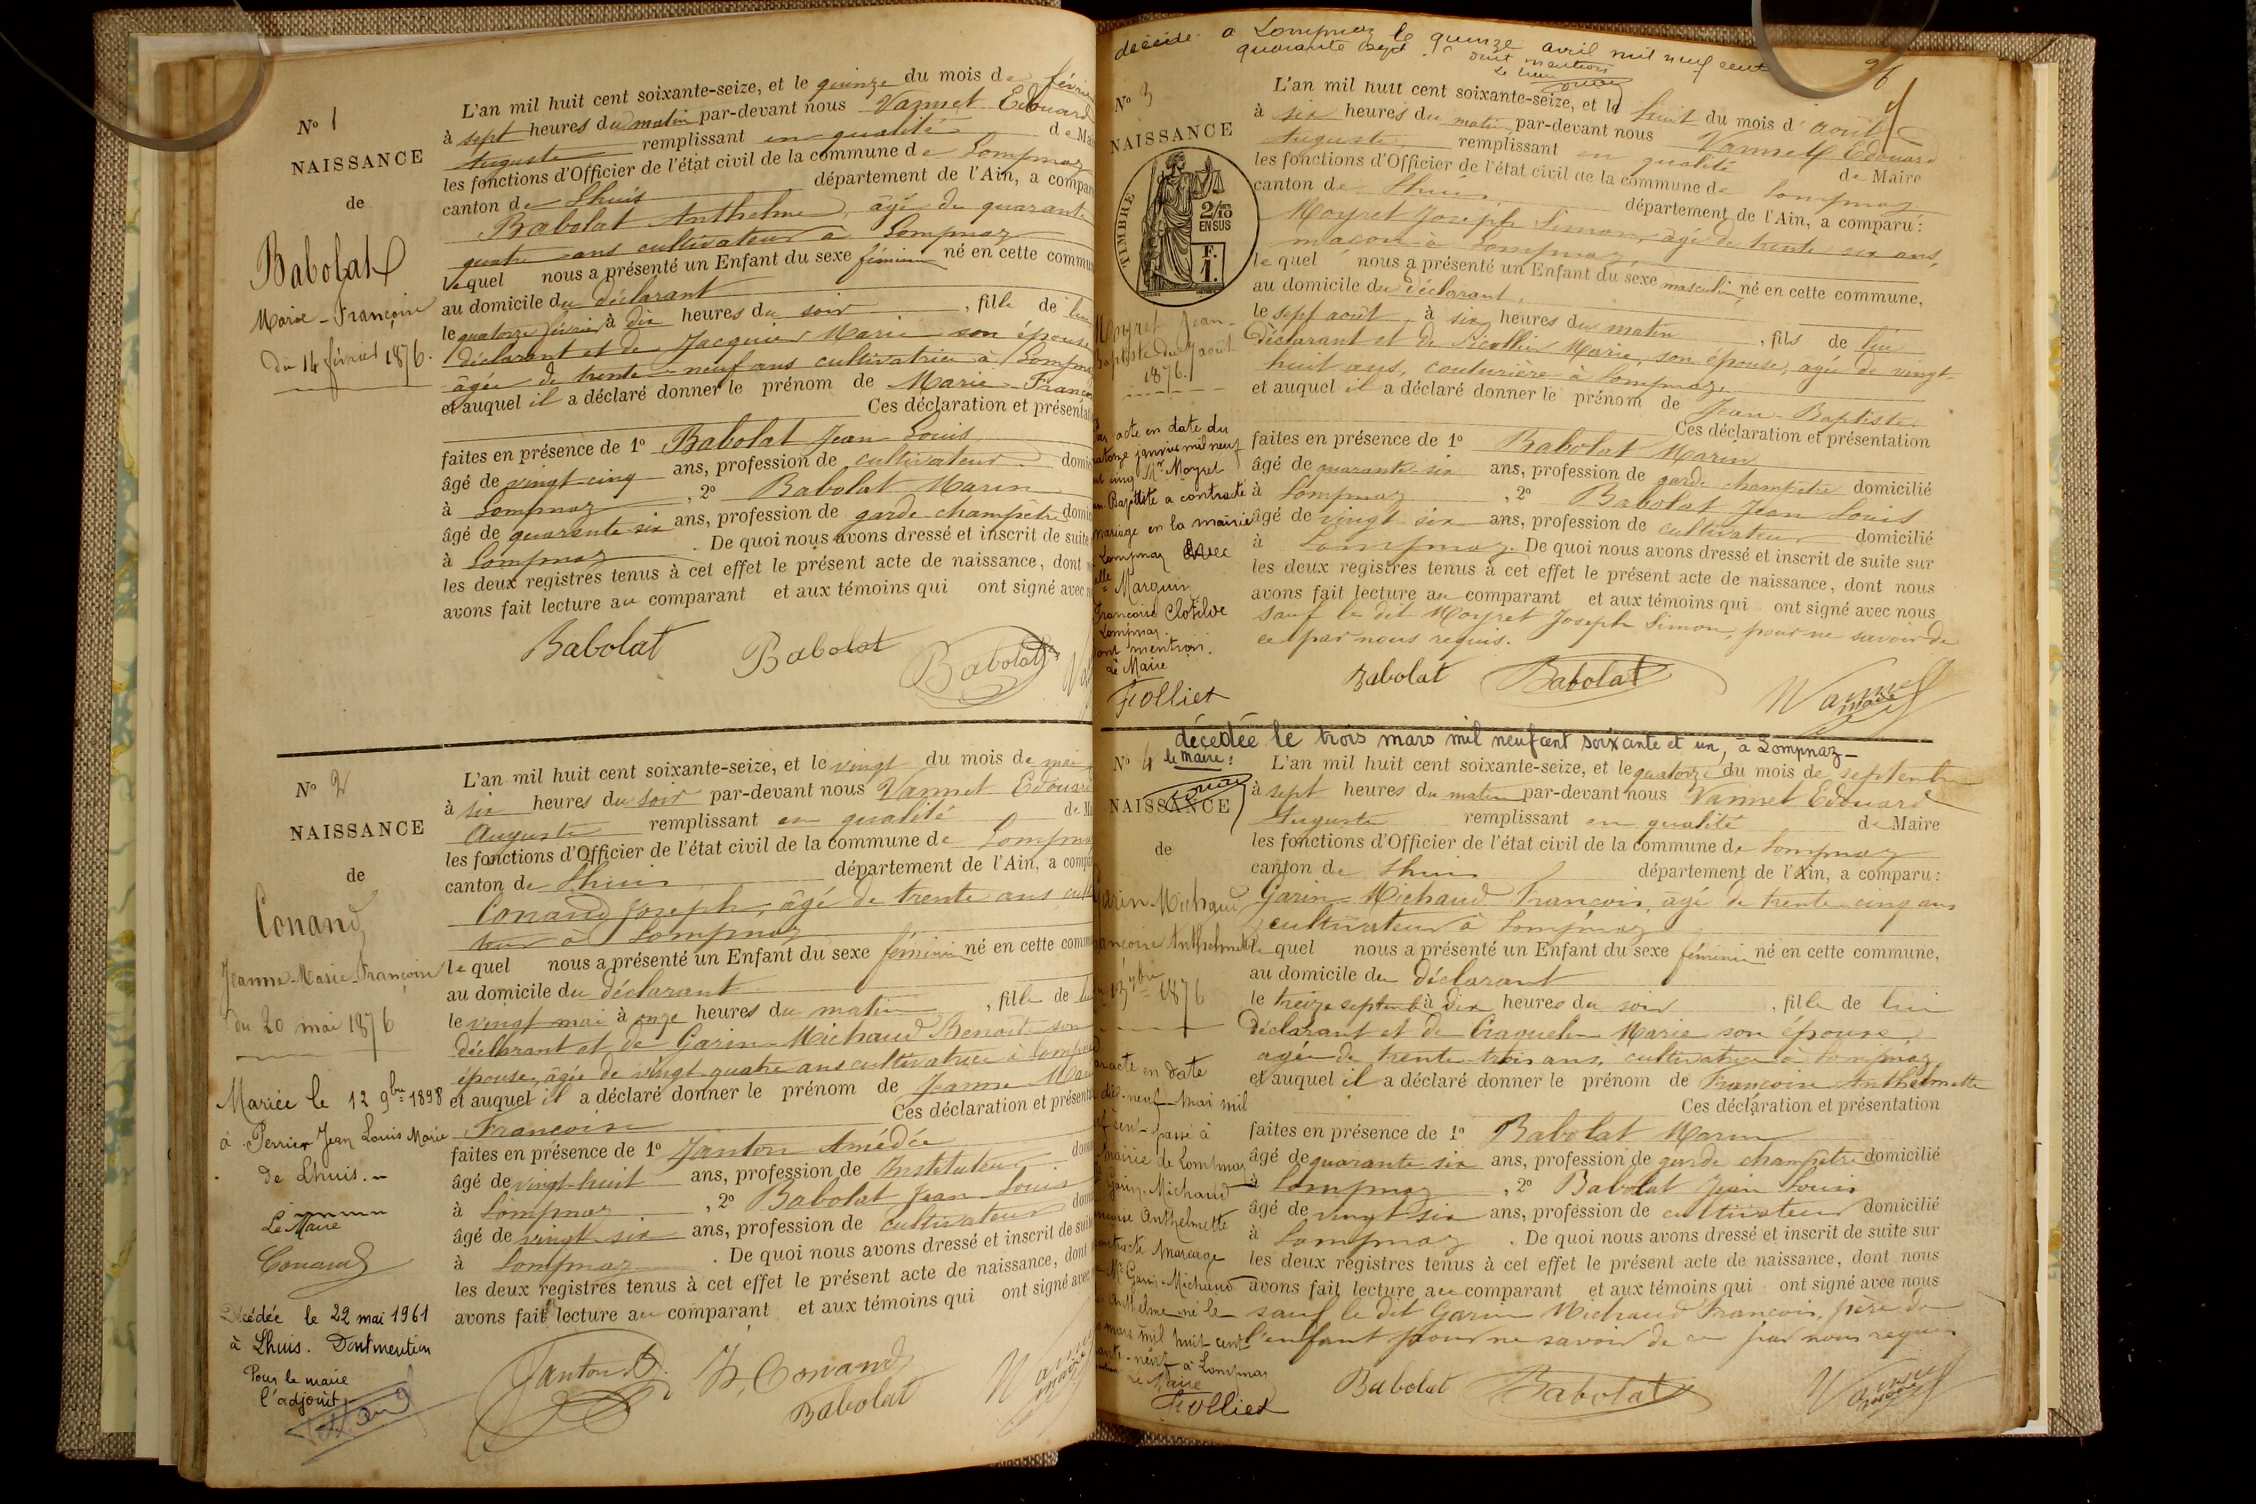 N° 1
NAISSANCE
de
Babolat
Marie-Françoise
du 14 février 1876.
L'an mil huit cent soixante-seize, et le quinze du mois de février
à sept heures du matin par-devant nous Vannet Edouard
Auguste remplissant en qualité de Mai
les fonctions d'Officier de l'état civil de la commune de Lompnaz
canton de Lhuis département de l'Ain, a compar
Babolat Anthelme, âgé de quarante
quatre ans cultivateur à Lompnaz
lequel nous a présenté un Enfant du sexe féminin né en cette commun
au domicile du déclarant
le quatorze février à dix heures du soir, fille de lui
déclarant et de Jacquier Marie son épouse
âgée de trente-neuf ans cultivatrice à Lompna
et auquel il a déclaré donner le prénom de Marie-Françoi
Ces déclaration et présentat
faites en présence de 1° Babolat Jean Louis
âgé de vingt-cinq ans, profession de cultivateur domic
à Lompnaz, 2° Babolat Marin
âgé de quarante six ans, profession de garde champetre domic
à Lompnaz. De quoi nous avons dressé et inscrit de suite
les deux registres tenus à cet effet le présent acte de naissance, dont n
avons fait lecture au comparant et aux témoins qui ont signé avec n
Babolat Babolat Babolat
N° 2
NAISSANCE
de
Conand
Jeanne-Marie-Françoise
du 20 mai 1876
Mariée le 12 9bre 1898
à Perrier Jean Louis Marie
de Lhuis.
Le Maire
Conand
Décédée le 22 mai 1961
à Lhuis. Dont mention
Pour le maire
l'adjoint
L'an mil huit cent soixante-seize, et le vingt du mois de mai
à six heures du soir par-devant nous Vannet Edouard
Auguste remplissant en qualité de M
les fonctions d'Officier de l'état civil de la commune de Lompna
canton de Lhuis département de l'Ain, a compa
Conand Joseph, âgé de trente ans cult
teur à Lompnaz
lequel nous a présenté un Enfant du sexe féminin né en cette comm
au domicile du déclarant
le vingt mai à onze heures du matin, fille de lui
déclarant et de Garin-Michaud Benoite son
épouse, âgée de vingt-quatre ans cultivatrice à Lompnaz
et auquel il a déclaré donner le prénom de Jeanne Marie
Françoise Ces déclaration et présenta
faites en présence de 1° Janton Amédée
âgé de vingt-huit ans, profession de Instituteur domi
à Lompnaz, 2° Babolat Jean Louis
âgé de vingt six ans, profession de cultivateur domi
à Lompnaz. De quoi nous avons dressé et inscrit de suite
les deux registres tenus à cet effet le présent acte de naissance, dont
avons fait lecture au comparant et aux témoins qui ont signé avec
Janton J. Conand
Babolat
décédé à Lompnaz le quinze avril mil neuf cent
quarante sept. dont mention
Le Maire
N° 3
NAISSANCE
TIMBRE
2/10 EN SUS
F. 1.
Moyret Jean-
Baptiste du 7 août
1876.
Par acte en date du
quatorze janvier mil neuf
cent cinq Mr Moyret
Jean Baptiste a contracté
mariage en la mairie
Lompnaz avec
elle Marquin
Françoise Clotilde
Lompnaz.
Dont mention.
Le Maire
Follier
L'an mil huit cent soixante-seize, et le huit du mois d'août
à six heures du matin par-devant nous Vannet Edouard
Auguste remplissant en qualité de Maire
les fonctions d'Officier de l'état civil de la commune de Lompnaz
canton de Lhuis département de l'Ain, a comparu:
Moyret Joseph Simon, âgé de trente six ans,
maçon à Lompnaz,
lequel nous a présenté un Enfant du sexe masculin, né en cette commune,
au domicile du déclarant,
le sept août à six heures du matin, fils de lui
déclarant et de Marie, son épouse, âgée de vingt-
huit ans, couturière à Lompnaz.
et auquel il a déclaré donner le prénom de Jean-Baptiste.
Ces déclaration et présentation
faites en présence de 1° Babolat Marin
âgé de quarante-six ans, profession de garde champetre domicilié
à Lompnaz, 2° Babolat Jean Louis
âgé de vingt six ans, profession de cultivateur domicilié
à Lompnaz. De quoi nous avons dressé et inscrit de suite sur
les deux registres tenus à cet effet le présent acte de naissance, dont nous
avons fait lecture au comparant et aux témoins qui ont signé avec nous
sauf le dit Moyret Joseph Simon, pour ne savoir de
ce par nous requis.
Babolat Babolat Vannet
maire
décédée le trois mars mil neuf cent soixante et un, à Lompnaz-
le maire:
N° 4
NAISSANCE
de
Garin-Michaud
Françoise Anthelmette
du 13 7bre 1876
par acte en date
dix-neuf mai mil
neuf cent passé à
mairie de Lompnaz
Garin-Michaud
Françoise Anthelmette
contracté mariage
Mr Garin-Michaud
Anthelme né le
mars mil huit cent
neuf à Lompnaz
Le Maire
Follier
L'an mil huit cent soixante-seize, et le quatorze du mois de septembre
à sept heures du matin par-devant nous Vannet Edouard
Auguste remplissant en qualité de Maire
les fonctions d'Officier de l'état civil de la commune de Lompnaz
canton de Lhuis département de l'Ain, a comparu:
Garin-Michaud François, âgé de trente-cinq ans
cultivateur à Lompnaz
lequel nous a présenté un Enfant du sexe féminin né en cette commune,
au domicile du déclarant
le treize septembre à dix heures du soir, fille de lui
déclarant et de Craquelin Marie son épouse
agée de trente-trois ans, cultivatrice à Lompnaz
et auquel il a déclaré donner le prénom de Françoise Anthelmette
Ces déclaration et présentation
faites en présence de 1° Babolat Marin
âgé de quarante six ans, profession de garde champetre domicilié
à Lompnaz, 2° Babolat Jean Louis
âgé de vingt six ans, profession de cultivateur domicilié
à Lompnaz. De quoi nous avons dressé et inscrit de suite sur
les deux registres tenus à cet effet le présent acte de naissance, dont nous
avons fait lecture au comparant et aux témoins qui ont signé avec nous
sauf le dit Garin Michaud François, père de
l'enfant pour ne savoir de ce par nous requis
Babolat Babolat Vannet
maire